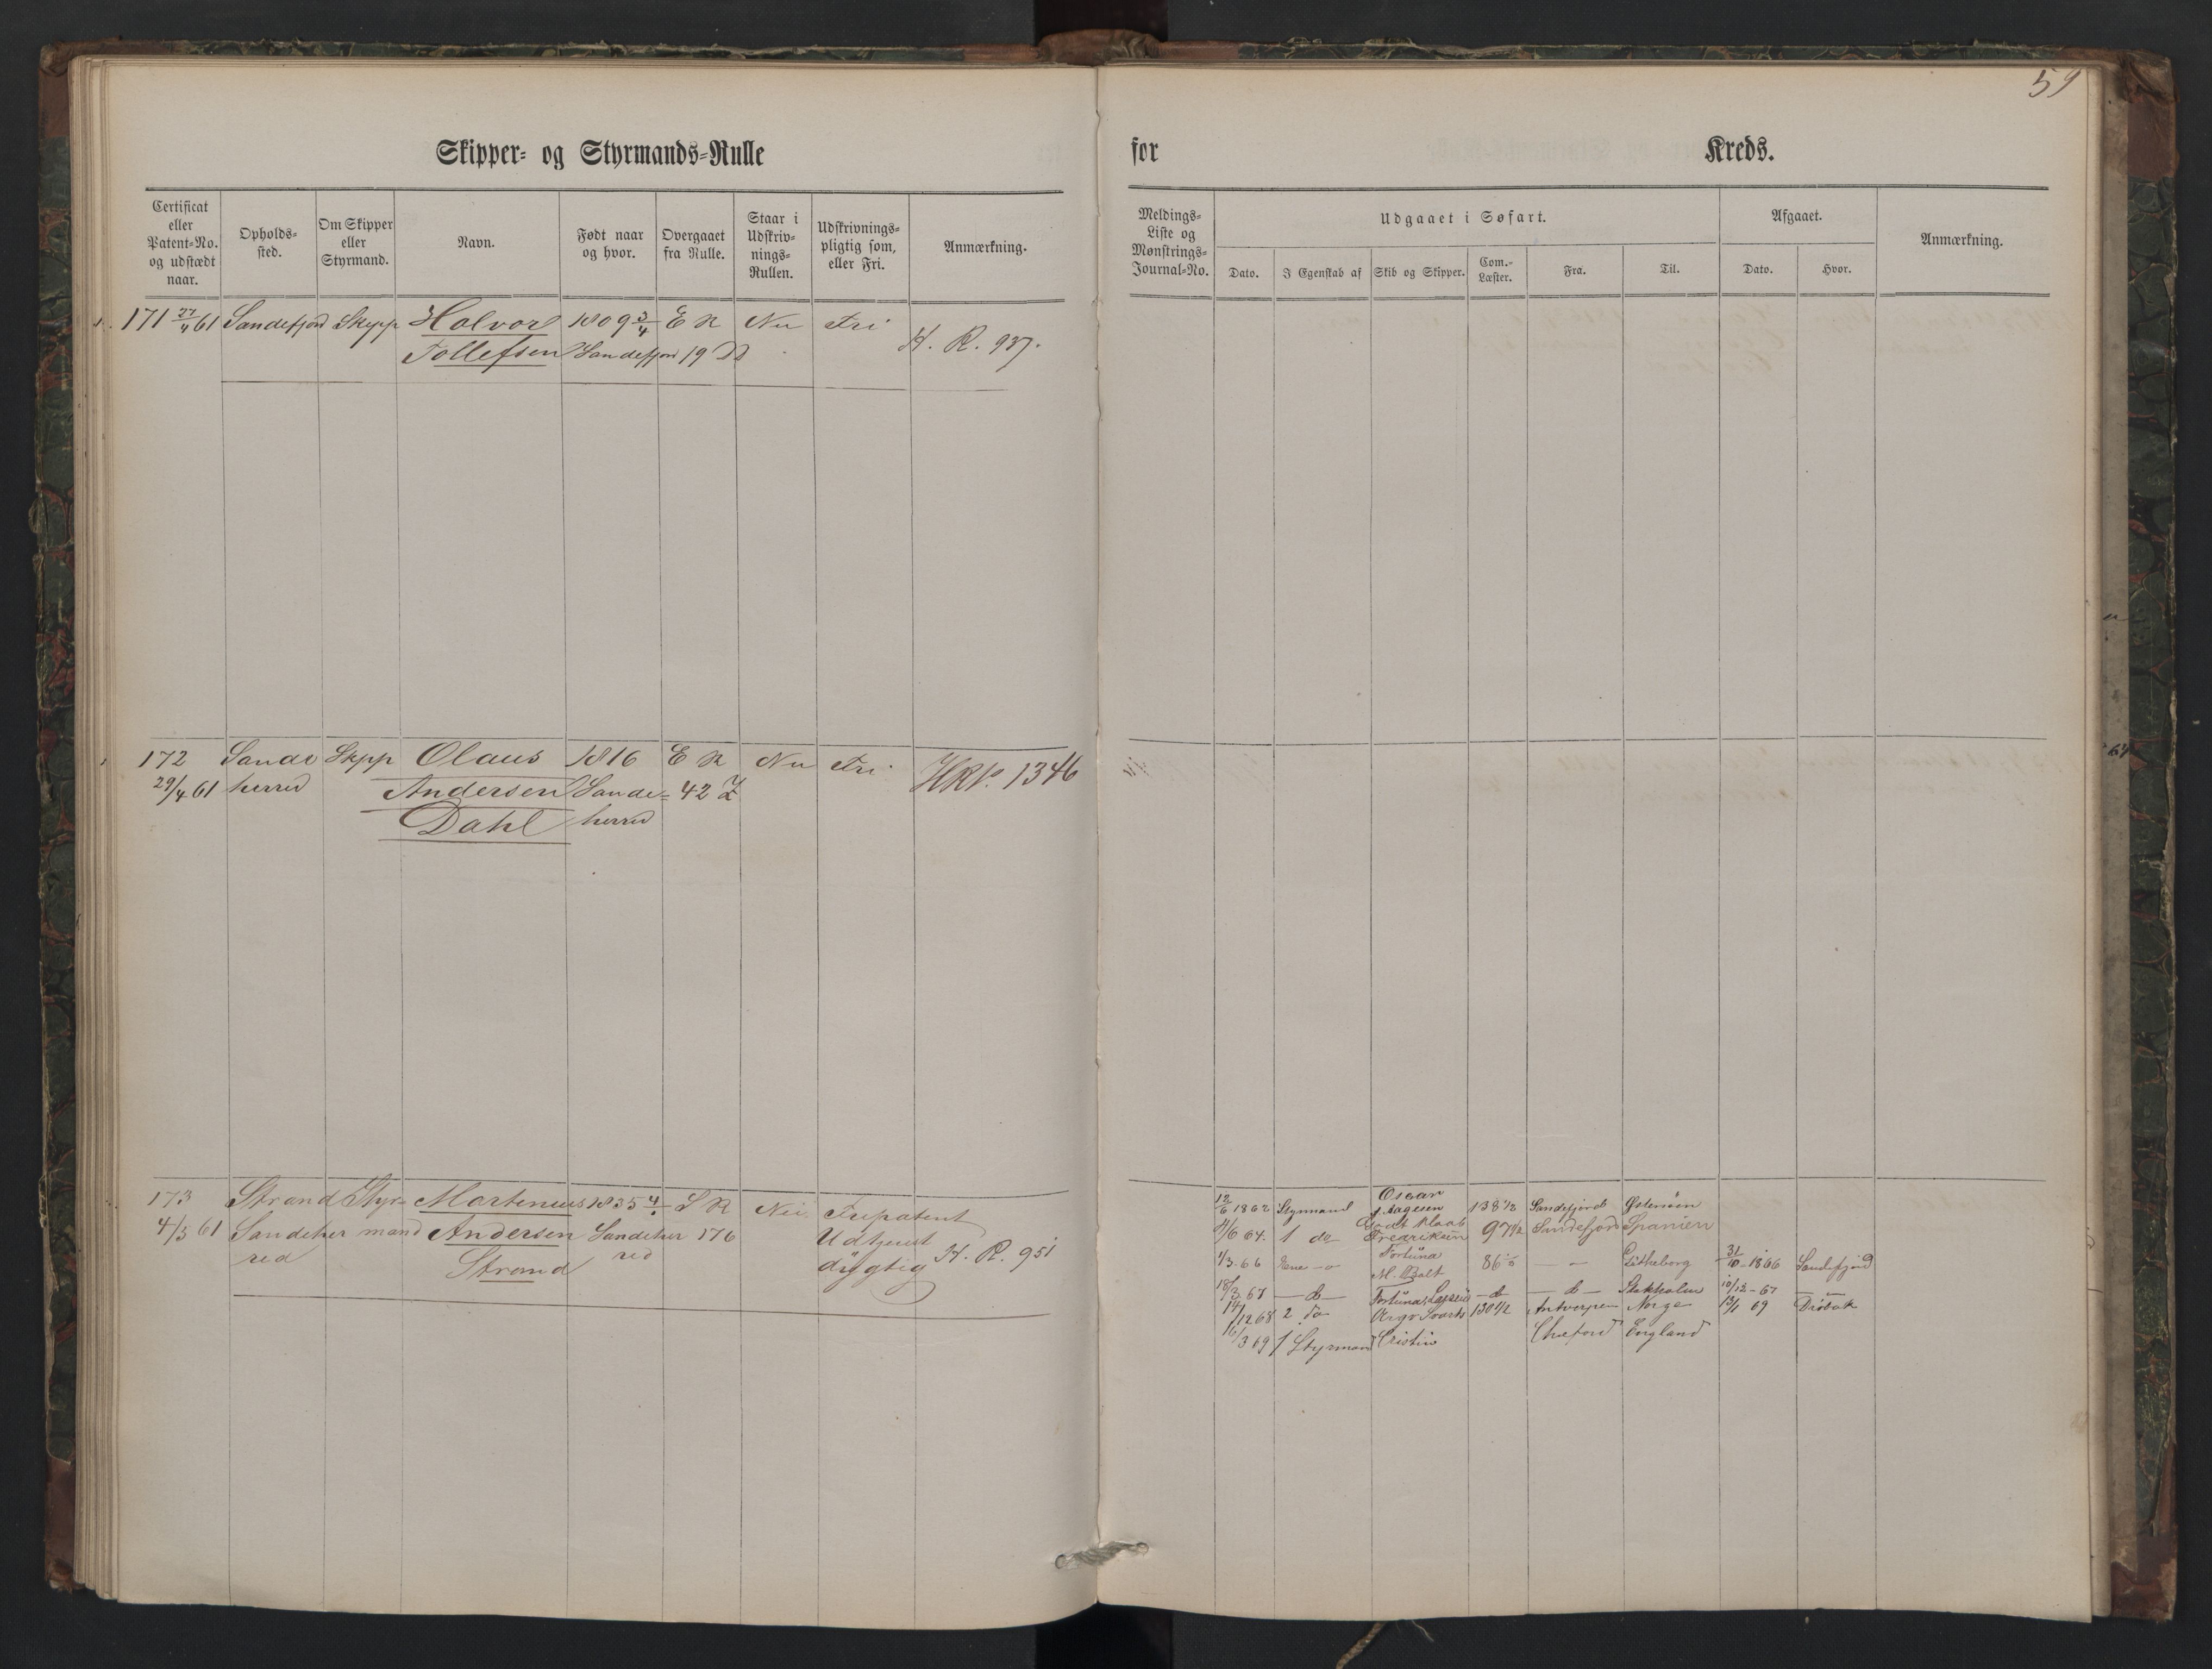 59
Skipper- og Styrmands-Rulle for Kreds.
Certificat eller Patent-No. og udstædt naar.
Opholds-sted.
Om Skipper eller Styrmand.
Navn.
Født naar og hvor.
Overgaaet fra Rulle.
Staar i Udskriv-nings-Rullen.
Udskrivnings-pligtig som, eller Fri.
Anmærkning.
Meldings-Liste og Mønstrings-Journal-No.
Udgaaet i Søfart.
Dato.
I Egenskab af
Skib og Skipper.
Com.-Læster.
Fra.
Til.
Afgaaet.
Dato.
Hvor.
Anmærkning.
171 27/4 61 Sandefjord Skipp Halvor 1809 3/4 E R Nei Fri
Tollefsen Sandefjord 19 H. R. 937.
172 Sande Skpp Olaus 1816 E R Nei Fri HRNo. 1346
29/4 61 herred Andersen Sande= 42
Dahl herred
173 Strand Styr= Martenius 1835 S R Nei Fripatent
4/5 61 Sandeher mand Andersen Sandeher 176 Udtjent
red Strand red dygtig H. R. 951
12/6 1862 Styrmand Oscar Aagesen 138 1/2 Sandefjord Østersöen
/6 64. 1 do Fredriksen 97 1/2 Sandefjord Spanien
1/3 66 Fortuna M. Bolt 86 Götheborg 31/10 1866 Sandefjord
18/3 67 do Fortuna do do Stokholm 10/12 - 67
14/12 68 2 do Argo 130 1/2 Antverpen Norge 13/1 69 Dröbak
16/3 69 1 Styrmand Cristin England